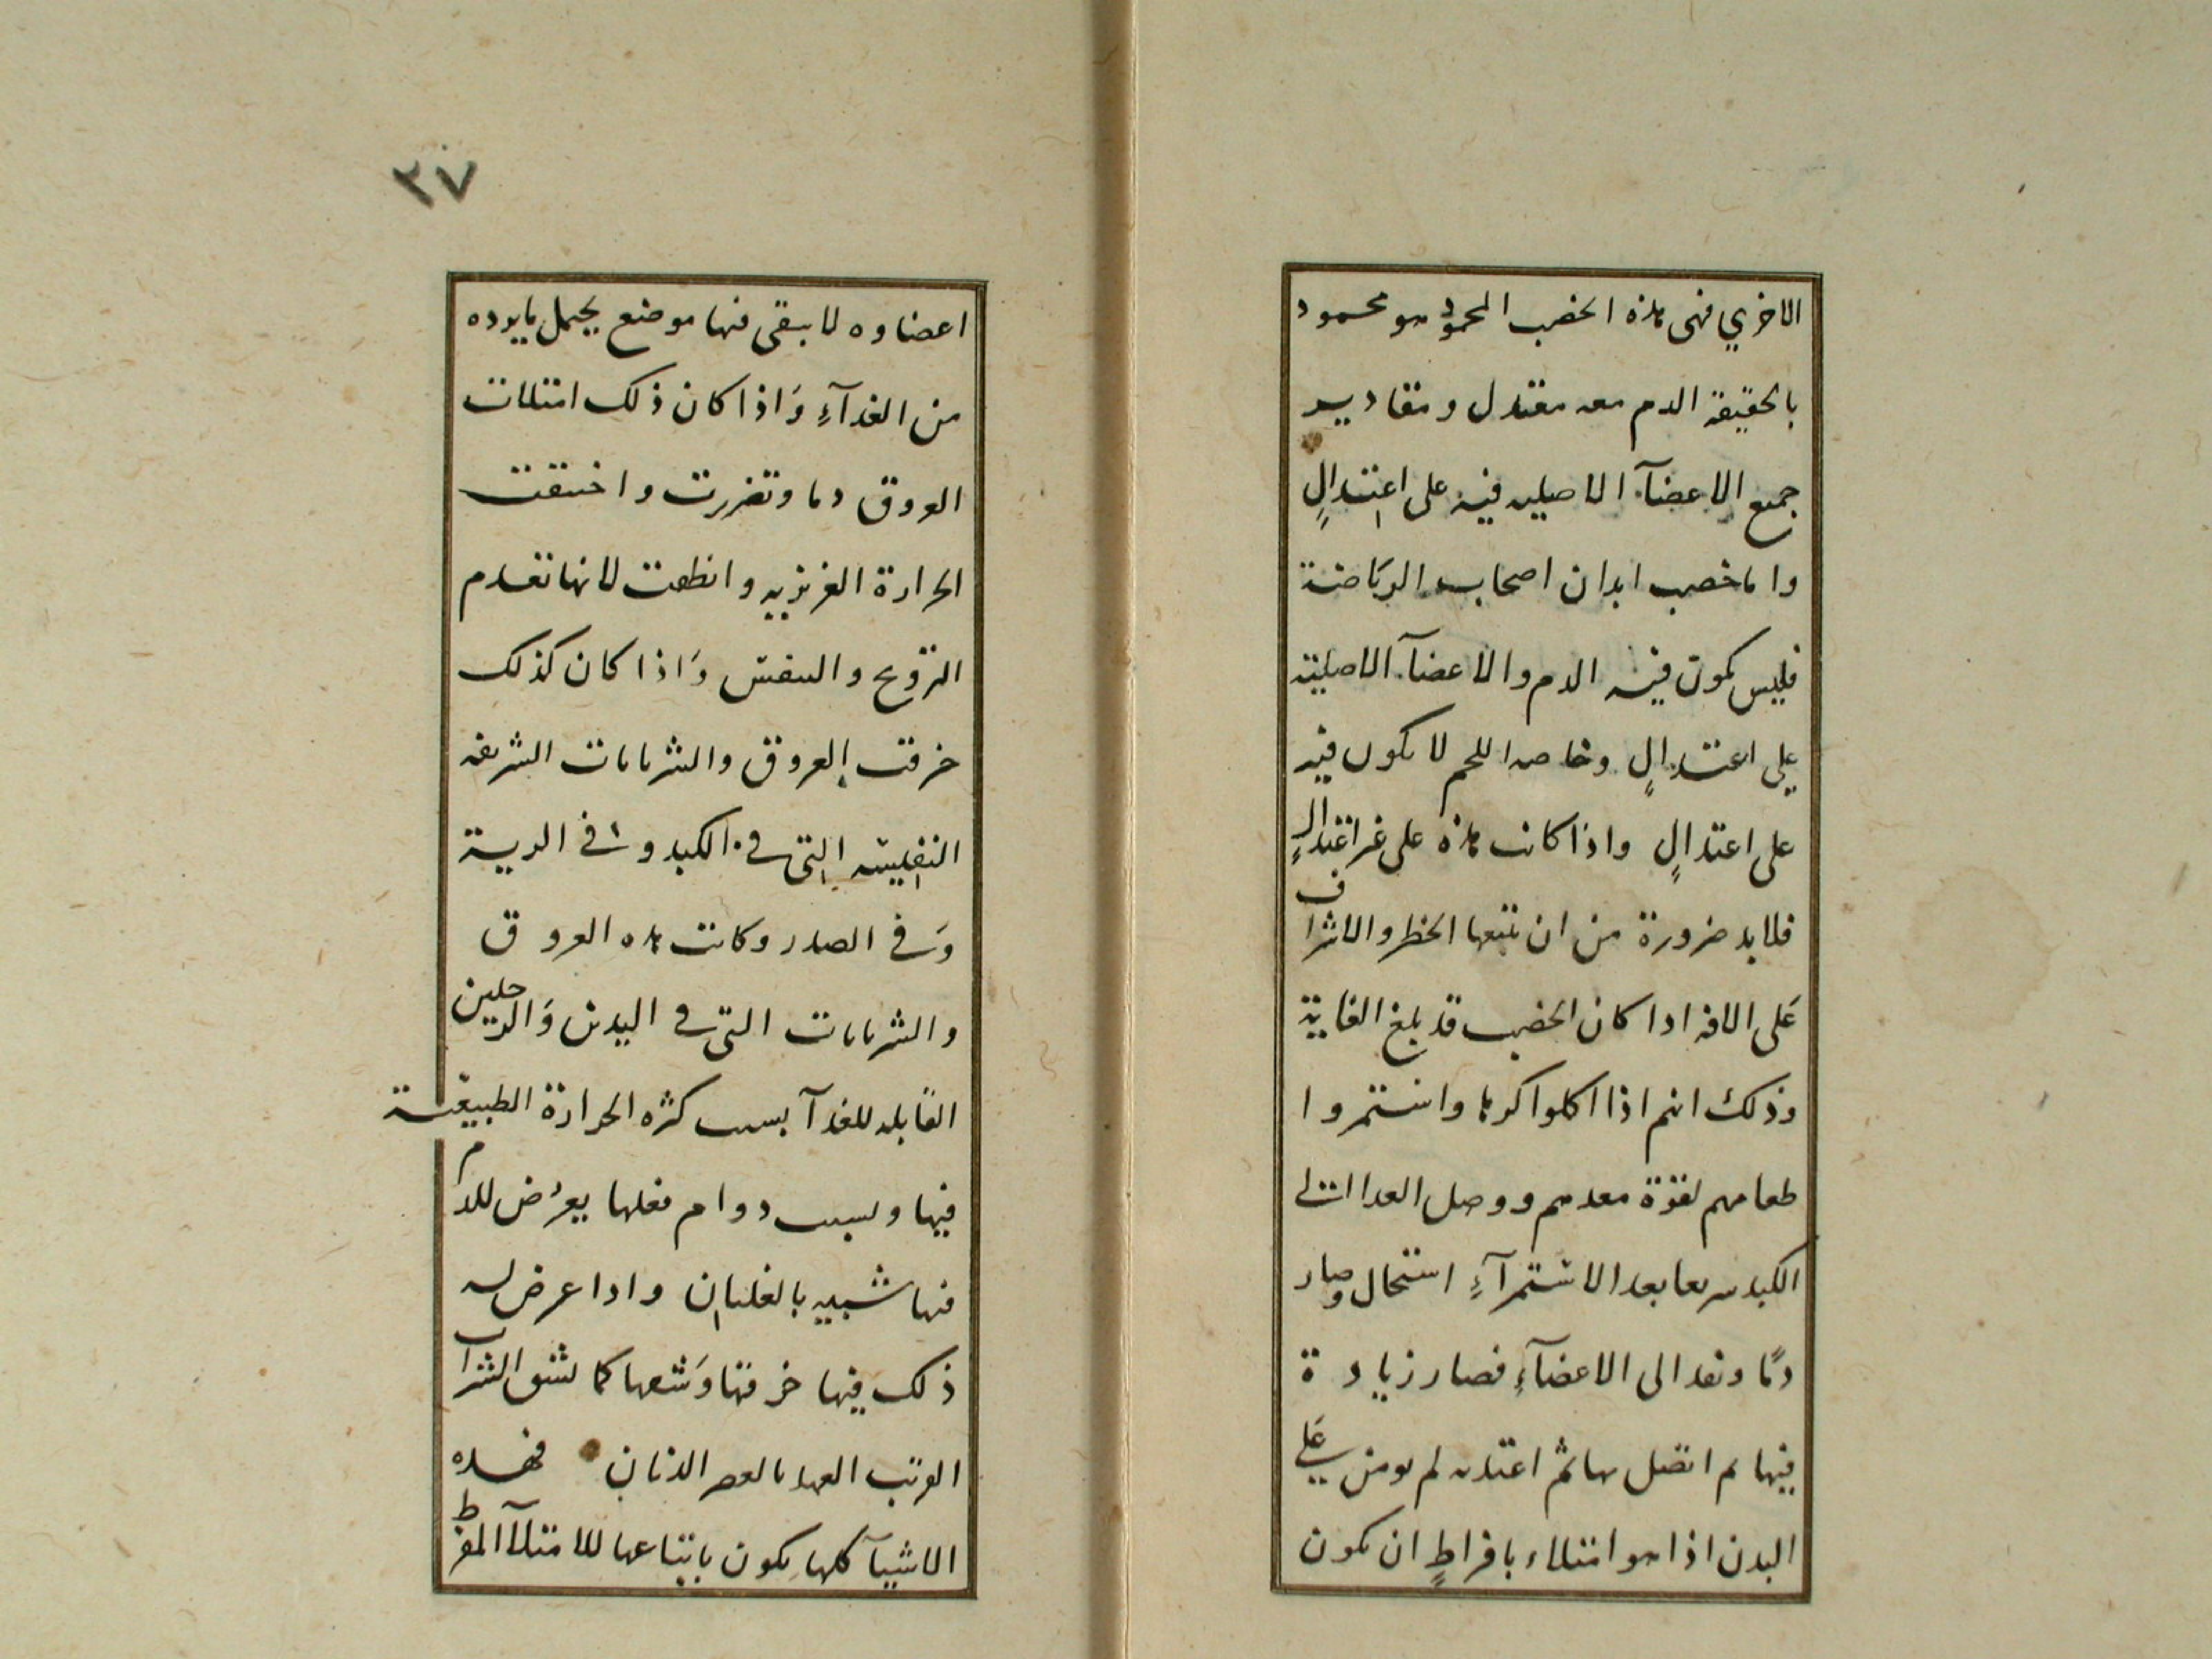 الاخري فهى هذه الخصب المحمود هو محمود
بالحقيقة الدم معه معتدل ومقادير
جميع الاعضآ الاصليه فيه على اعتدالٍ
واما خصب ابدان اصحاب الرياضة
فليس يكون فيه الدم والاعضآ الاصلية
علي اعتدالٍ وخاصه اللحم لا يكون فيه
على اعتدالٍ واذا كانت هذه على غير اعتدالٍ
فلابد ضرورة من ان يتبعها الخطر والاشراف
عَلى الافه اذا كان الخصب قد بلغ الغاية
وذلك انهم اذا اكلوا كرها واستمروا
طعامهم لقوّة معدهم ووصل الغدا الى
الكبد سريعا بعد الاستمرآءِ استحال وصار
دمًا ونفد الى الاعضآءِ فصار زيادة
فيها ثم اتصل بها ثم اغتدت لم يومن عَلي
البدن اذا هو امتلاء بافراطٍ ان يكون
٣٧
اعضاوه لا يبقى فيها موضع يحمل ما يوده
من الغدآءِ وَاذا كان ذلك امتلات
العروق دما وتضررت واختنقت
الحرارة الغريزيه وانطفت لانها تعدم
التروّح والتنفس وَاذا كان كذلك
خرقت العروق والشريانات الشريفه
النفيسه التى في الكبد و في الرية
وَفي الصدر وكانت هذه العروق
والشريانات التى في اليدين وَالرجلين
القابله للغدآ بسبب كثره الحرارة الطبيعّية
فيها وبسبب دوام فعلها يعرُض للدم
فيها شبيه بالغليان واذا عرض له
ذلك فيها خرقها وَشقها كما يشق الشراب
القريب العهد بالعصر الدنان فهده
الاشيآ كلها يكون باتباعها للامتلآ المفرط